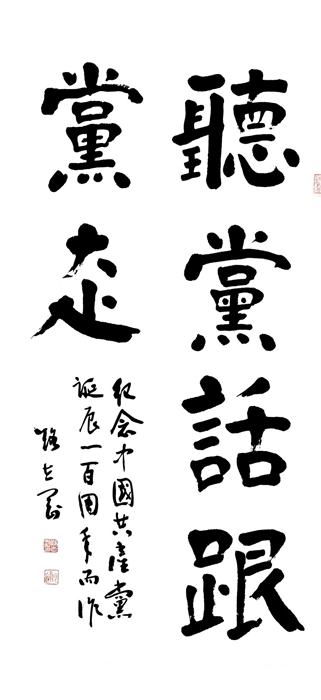 聽黨話跟
黨走
紀念中國共產黨
誕辰一百周年而作